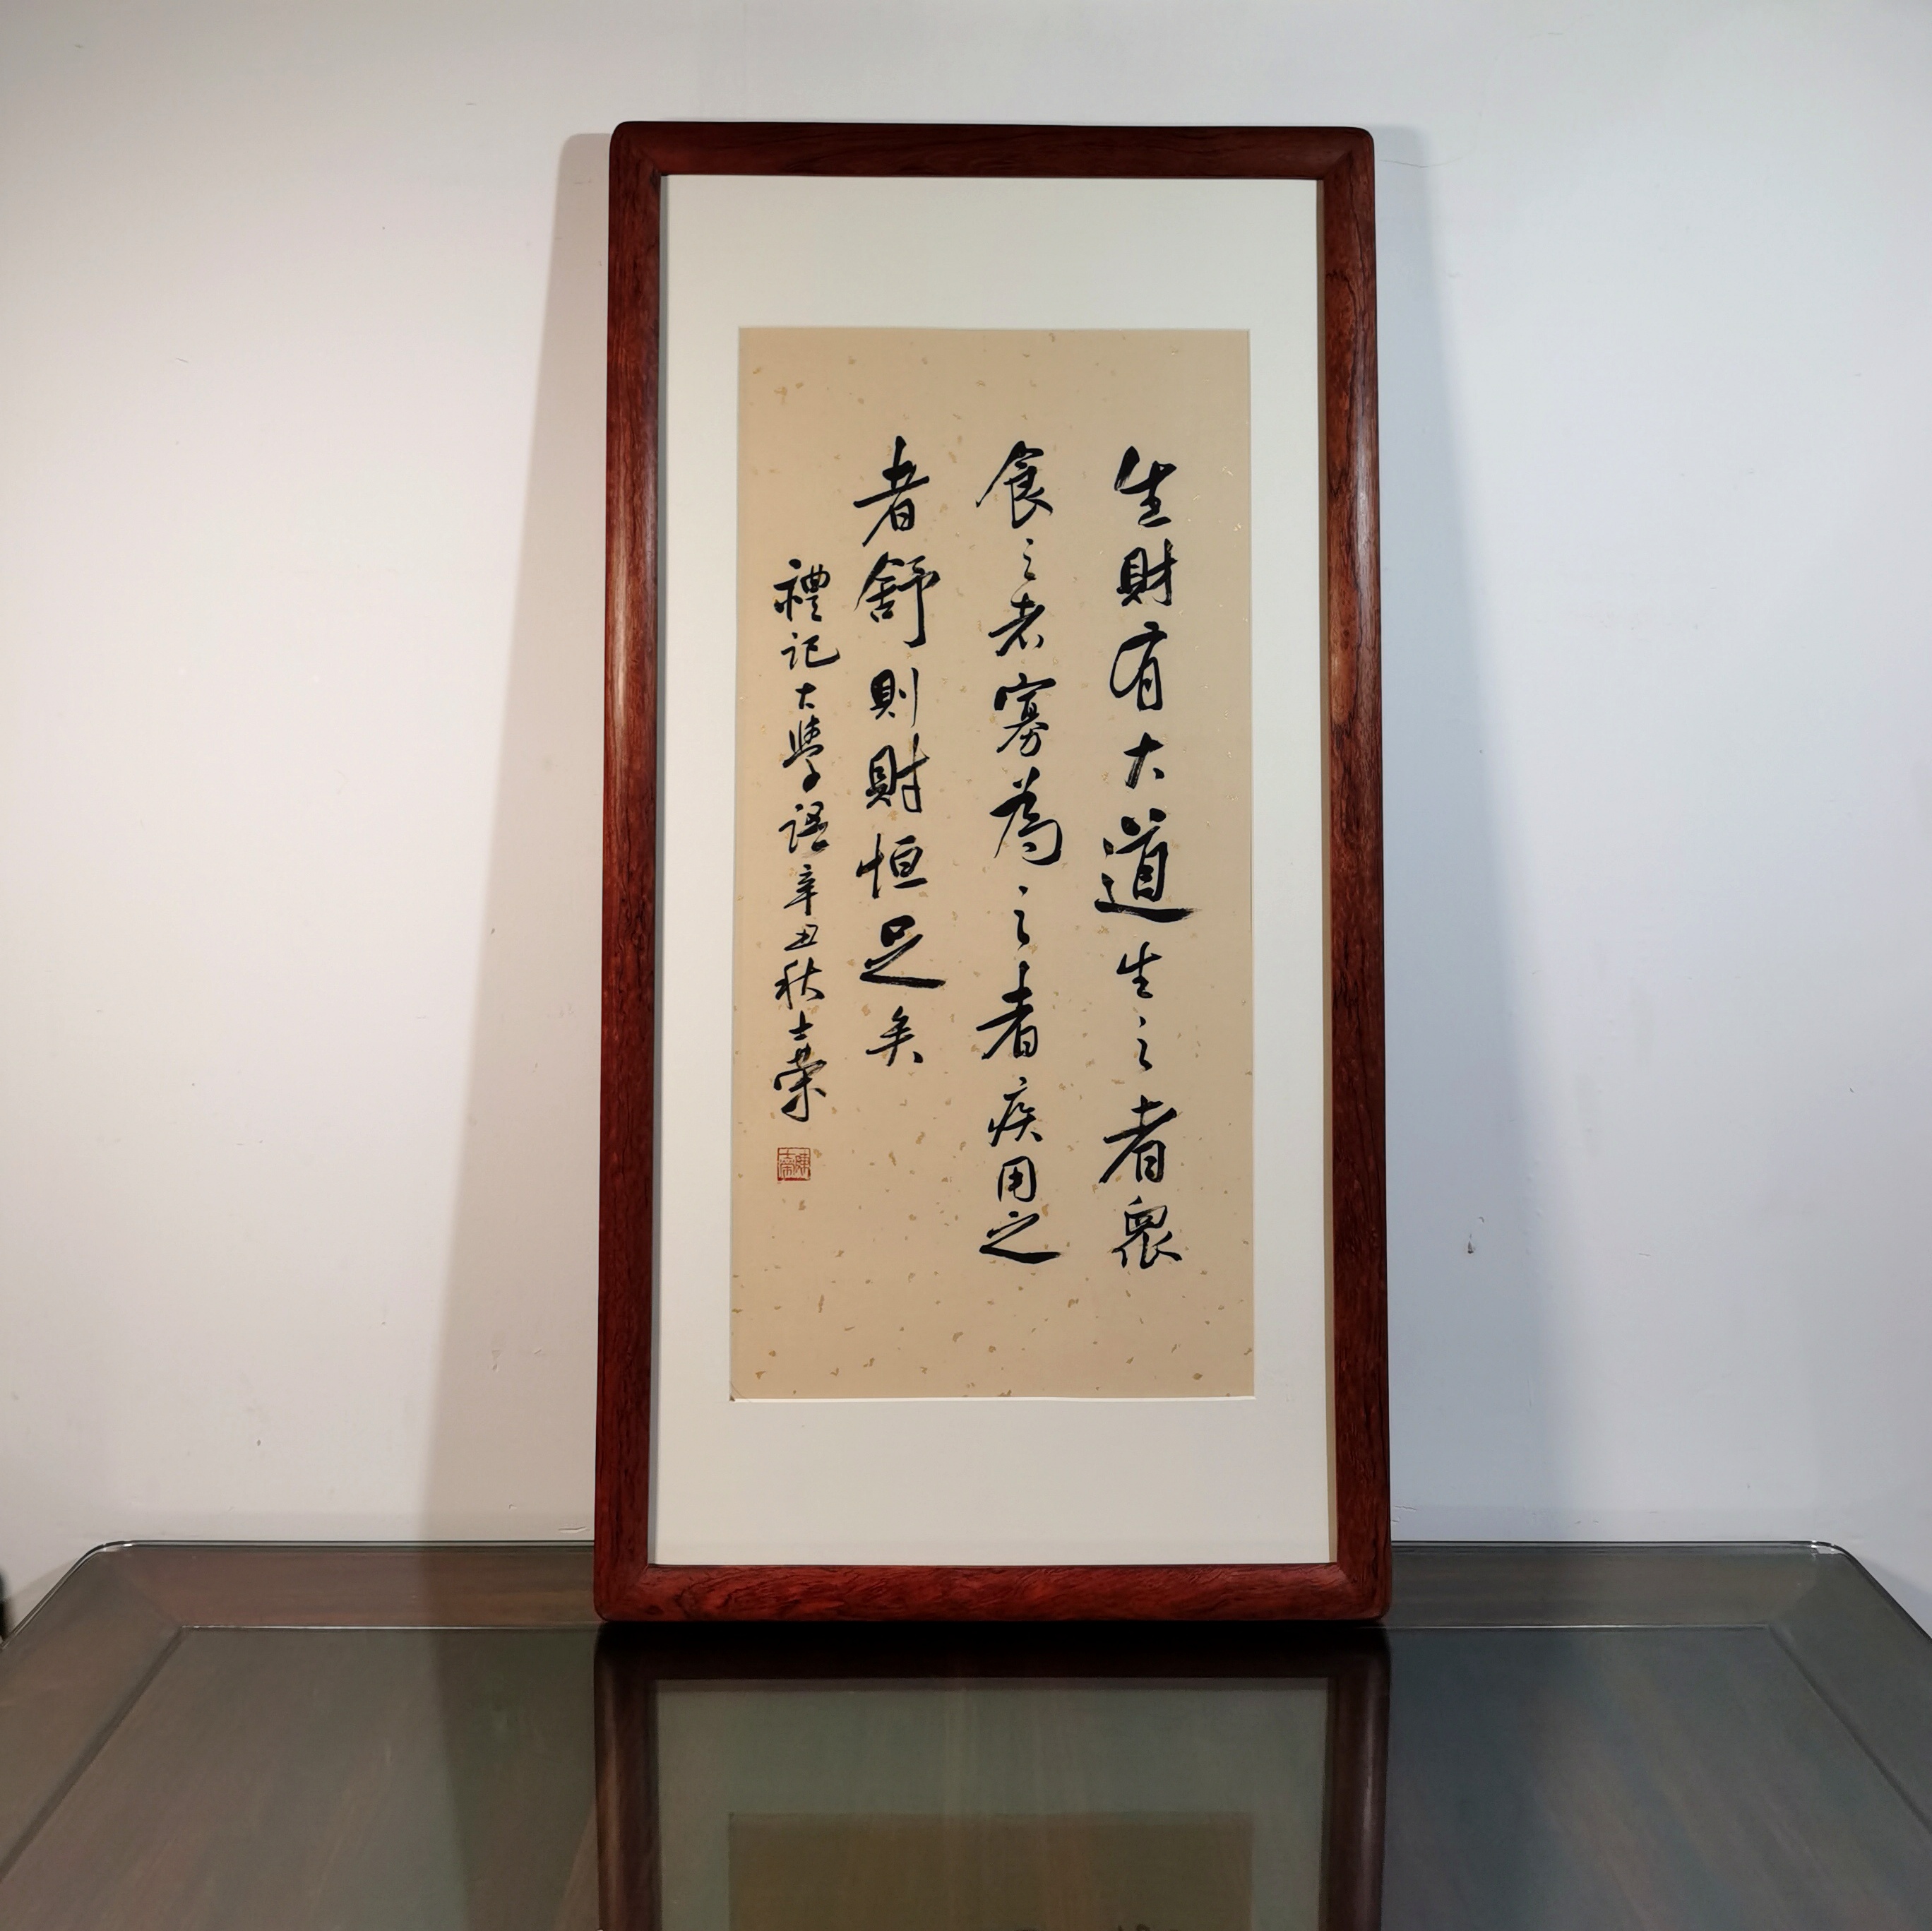 生財有大道生之者衆
食之者寡為之者疾用之
者舒則財恒足矣
禮記大學語辛丑秋士榮